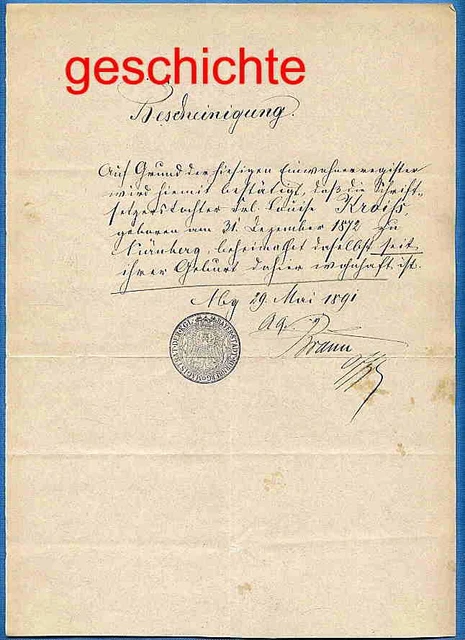 geschichte
Bescheinigung.
Auf Grund der hiesigen Einwohnerregister
wird hiemit bestätigt, daß die Schrift-
setzerstochter Frl. Louise Kroiß,
geboren am 31. Dezember 1872 zu
Nürnberg, beheimathet daselbst seit
ihrer Geburt dahier wohnhaft ist.
Nbg 29. Mai 1891
Braun